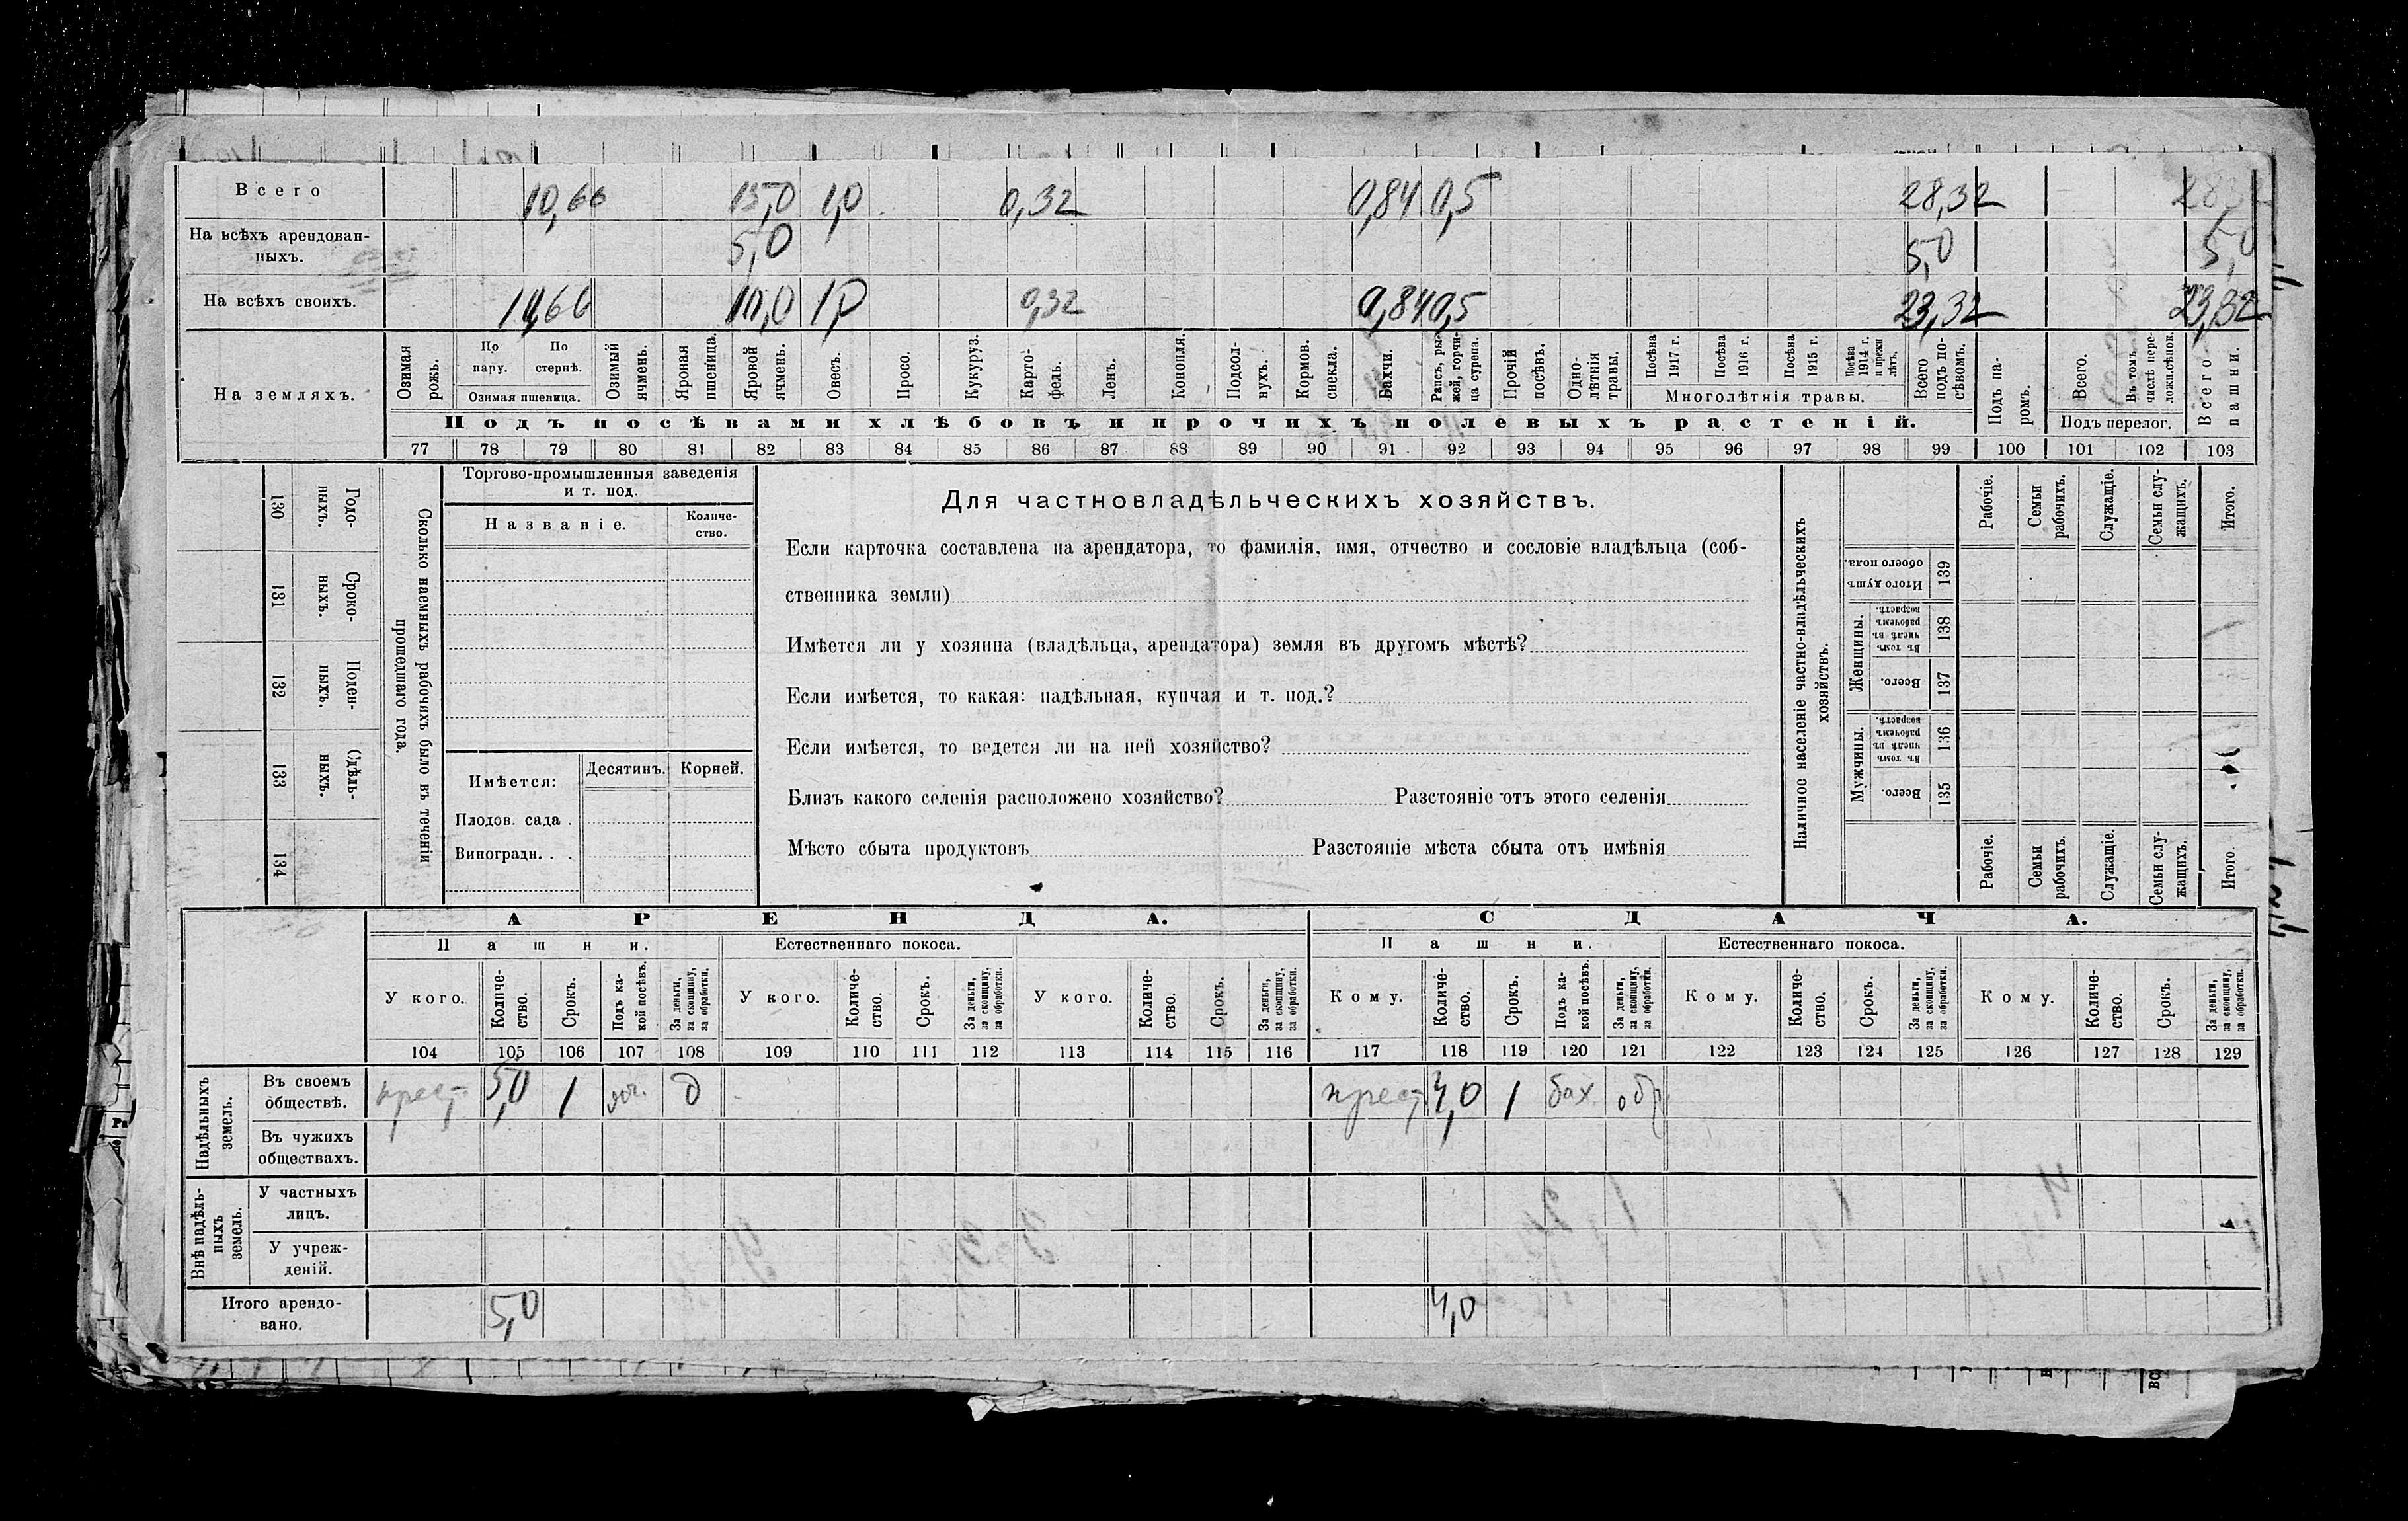 Всего 10,66 15,0 1,0 0,32 0,84 0,5 28,32 28,32
На всѣхъ арендован-
ныхъ. 5,0 5,0 5,0
На всѣхъ своихъ. 10,66 10,0 1,0 0,32 0,84 0,5 23,32 23,32
На земляхъ.
Озимая рожь.
По пару.
По стернѣ.
Озимая пшеница.
Озимый ячмень.
Яровая пшеница.
Яровой ячмень.
Овесъ.
Просо.
Кукуруз.
Карто-
фель.
Ленъ.
Конопля.
Подсол-
нухъ.
Кормов. свекла.
Бахчи.
Рапсъ, ры-
жей, горчи-
ца сурепа.
Прочій посѣвъ.
Одно-
лѣтнія травы.
Посѣва 1917 г.
Посѣва 1916 г.
Посѣва 1915 г.
Посѣва 1914 г. и прежн лѣтъ.
Многолѣтнія травы.
Всего подъ по-
сѣвомъ.
Подъ па-
ромъ.
Всего.
Въ томъ числѣ пере-
ложн.сѣнок.
Подъ перелог.
Всего пашни.
Подъ посѣвами хлѣбовъ и прочихъ полевыхъ растеній.
77 78 79 80 81 82 83 84 85 86 87 88 89 90 91 92 93 94 95 96 97 98 99 100 101 102 103
130 Годо-
выхъ.
131 Сроко-
выхъ.
132 Поден-
ныхъ.
133 Сдѣль-
ныхъ.
134
Сколько наемныхъ рабочихъ было въ теченіи
прошедшаго года.
Торгово-промышленныя заведенія
и т. под.
Названіе.
Количе-
ство.
Имѣется: Десятинъ. Корней.
Плодов. сада .
Виноградн. . .
Для частновладѣльческихъ хозяйствъ.
Если карточка составлена на арендатора, то фамилія, имя, отчество и сословіе владѣльца (соб-
ственника земли)
Имѣется ли у хозяина (владѣльца, арендатора) земля въ другомъ мѣстѣ?
Если имѣется, то какая: надѣльная, купчая и т. под.?
Если имѣется, то ведется ли на ней хозяйство?
Близъ какого селенія расположено хозяйство? Разстояніе отъ этого селенія
Мѣсто сбыта продуктовъ Разстояніе мѣста сбыта отъ имѣнія
Наличное населеніе частно-владѣльческихъ
хозяйствъ.
Рабочіе.
Семьи рабочихъ.
Служащіе.
Семьи слу-
жащихъ.
Итого.
Итого душъ обоего пола. 139
Женщины.
Въ томъ числѣ въ рабочемъ возрастѣ. 138
Всего. 137
Мужчины.
Въ томъ числѣ въ рабочемъ возрастѣ. 136
Всего. 135
Рабочіе.
Семьи рабочихъ.
Служащіе.
Семьи слу-
жащихъ.
Итого.
АРЕНДА. СДАЧА.
Пашни. Естественнаго покоса. Пашни. Естественнаго покоса.
У кого.
Количе-
ство.
Срокъ.
Подъ ка-
кой посѣвъ.
За деньги, за скопщину, за обработки.
У кого.
Количе-
ство.
Срокъ.
За деньги, за скопщину, за обработки.
У кого.
Количе-
ство.
Срокъ.
За деньги, за скопщину, за обработки.
Кому.
Количе-
ство.
Срокъ.
Подъ ка-
кой посѣвъ.
За деньги, за скопщину, за обработки.
Кому.
Количе-
ство.
Срокъ.
За деньги, за скопщину, за обработки.
Кому.
Количе-
ство.
Срокъ.
За деньги, за скопщину, за обработки.
104 105 106 107 108 109 110 111 112 113 114 115 116 117 118 119 120 121 122 123 124 125 126 127 128 129
Надѣльныхъ земель.
Въ своемъ
обществѣ. крест 5,0 1 яч. д крест 4,0 1 бах обр
Въ чужихъ
обществахъ.
Внѣ надѣль-
ныхъ земель.
У частныхъ
лицъ.
У учреж-
деній.
Итого арендо-
вано. 5,0 4,0